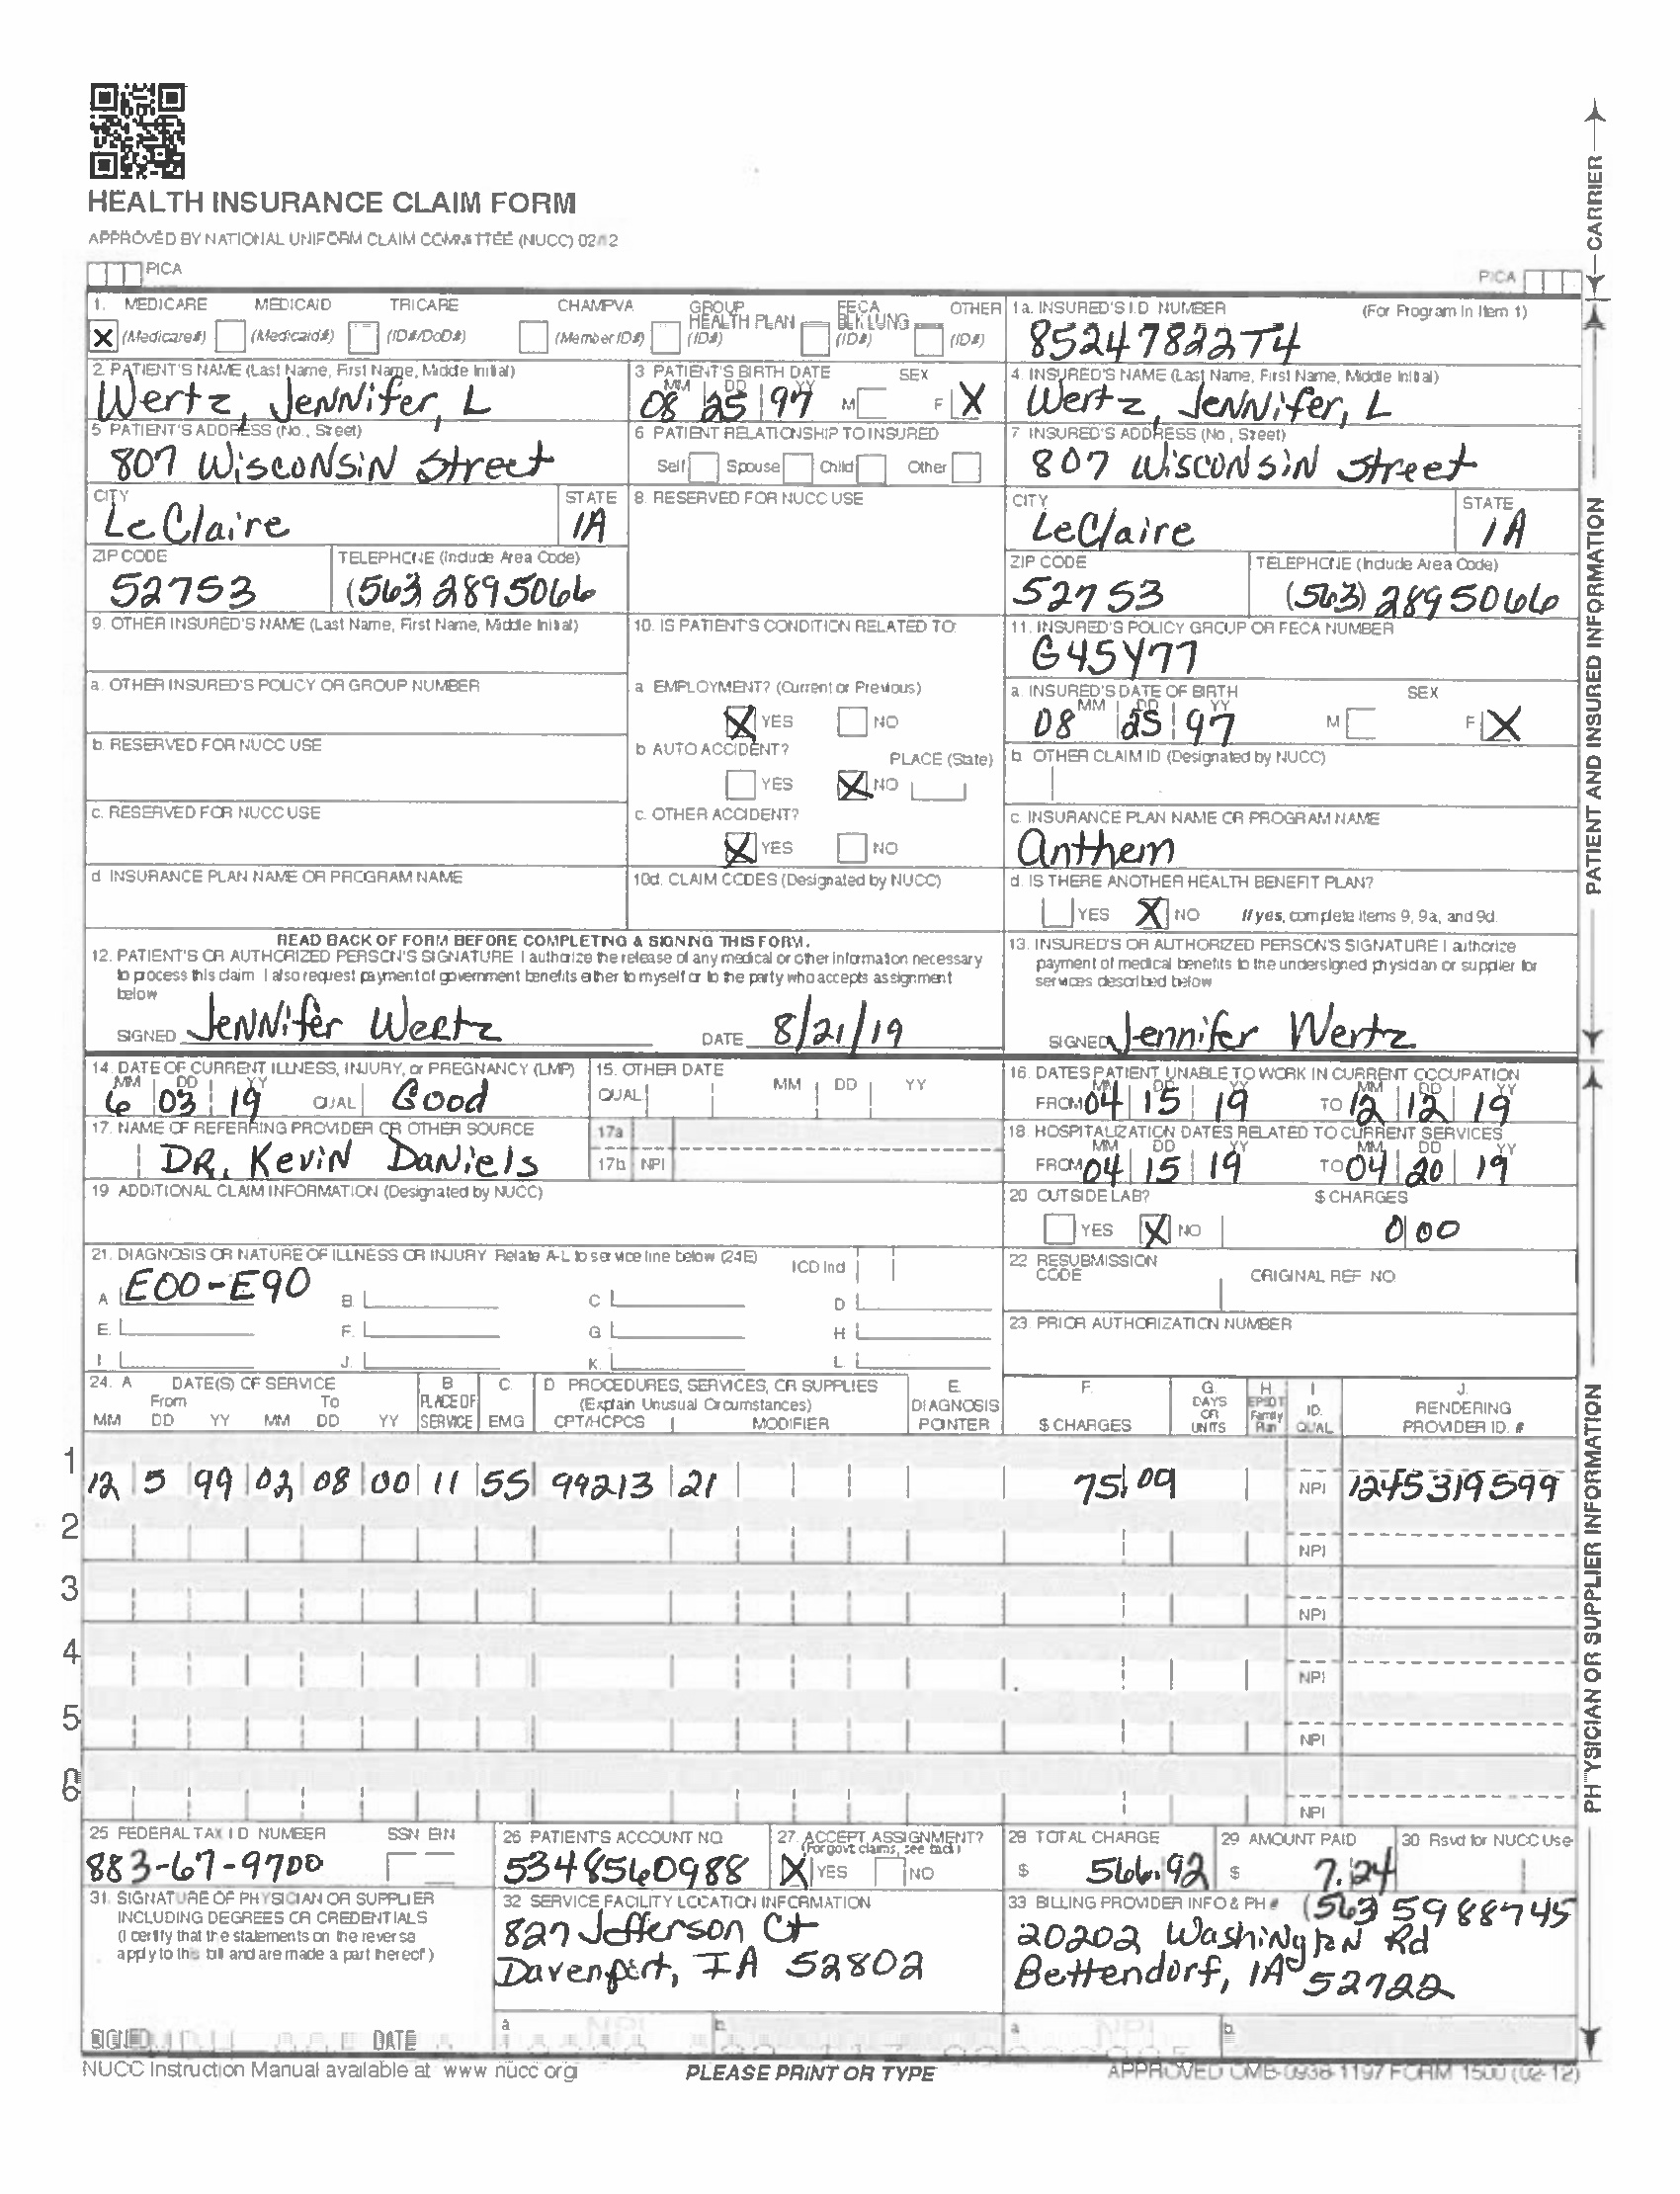 HEALTH INSURANCE CLAIM FORM
APPROVED BY NATIONAL UNIFORM CLAIM COMMITTEE (NUCC) 02/12
PICA
PICA
CARRIER
1. MEDICARE MEDICAID TRICARE CHAMPVA GROUP HEALTH PLAN FECA BLK LUNG OTHER
X (Medicare#) (Medicaid#) (ID#/DoD#) (Member ID#) (ID#) (ID#) (ID#)
1a. INSURED'S I.D. NUMBER (For Program In Item 1)
85247822T4
2. PATIENT'S NAME (Last Name, First Name, Middle Initial)
Wertz, Jennifer, L
3 PATIENT'S BIRTH DATE SEX
MM DD YY
08 25 97 M F X
4. INSURED'S NAME (Last Name, First Name, Middle Initial)
Wertz, Jennifer, L
5 PATIENT'S ADDRESS (No., Street)
807 Wisconsin Street
6 PATIENT RELATIONSHIP TO INSURED
Self Spouse Child Other
7 INSURED'S ADDRESS (No., Street)
807 Wisconsin Street
CITY STATE
LeClaire IA
8. RESERVED FOR NUCC USE
CITY STATE
LeClaire IA
ZIP CODE TELEPHONE (Include Area Code)
52753 (563 2895066
ZIP CODE TELEPHONE (Include Area Code)
52753 (563) 2895066
9. OTHER INSURED'S NAME (Last Name, First Name, Middle Initial)
10. IS PATIENT'S CONDITION RELATED TO:
11. INSURED'S POLICY GROUP OR FECA NUMBER
G45Y77
a. OTHER INSURED'S POLICY OR GROUP NUMBER
a. EMPLOYMENT? (Current or Previous)
X YES NO
a. INSURED'S DATE OF BIRTH SEX
MM DD YY
08 25 97 M F X
b. RESERVED FOR NUCC USE
b. AUTO ACCIDENT? PLACE (State)
YES X NO
b. OTHER CLAIM ID (Designated by NUCC)
c. RESERVED FOR NUCC USE
c. OTHER ACCIDENT?
X YES NO
c. INSURANCE PLAN NAME OR PROGRAM NAME
Anthem
d. INSURANCE PLAN NAME OR PROGRAM NAME
10d. CLAIM CODES (Designated by NUCC)
d. IS THERE ANOTHER HEALTH BENEFIT PLAN?
YES X NO If yes, complete items 9, 9a, and 9d.
READ BACK OF FORM BEFORE COMPLETING & SIGNING THIS FORM.
12. PATIENT'S OR AUTHORIZED PERSON'S SIGNATURE I authorize the release of any medical or other information necessary
to process this claim. I also request payment of government benefits either to myself or to the party who accepts assignment
below
SIGNED Jennifer Wertz DATE 8/21/19
13. INSURED'S OR AUTHORIZED PERSON'S SIGNATURE I authorize
payment of medical benefits to the undersigned physician or supplier for
services described below
SIGNED Jennifer Wertz
PATIENT AND INSURED INFORMATION
14. DATE OF CURRENT ILLNESS, INJURY, or PREGNANCY (LMP)
MM DD YY
6 03 19 QUAL Good
15. OTHER DATE
QUAL MM DD YY
16. DATES PATIENT UNABLE TO WORK IN CURRENT OCCUPATION
MM DD YY MM DD YY
FROM 04 15 19 TO 12 12 19
17. NAME OF REFERRING PROVIDER OR OTHER SOURCE
DR. Kevin Daniels
17a
17b NPI
18. HOSPITALIZATION DATES RELATED TO CURRENT SERVICES
MM DD YY MM DD YY
FROM 04 15 19 TO 04 20 19
19 ADDITIONAL CLAIM INFORMATION (Designated by NUCC)
20 OUTSIDE LAB? $ CHARGES
YES X NO 0 00
21. DIAGNOSIS OR NATURE OF ILLNESS OR INJURY Relate A-L to service line below (24E) ICD Ind
A E00-E90 B. C D
E. F. G H
I. J. K. L
22 RESUBMISSION CODE ORIGINAL REF. NO.
23. PRIOR AUTHORIZATION NUMBER
24. A DATE(S) OF SERVICE B C. D PROCEDURES, SERVICES, OR SUPPLIES E. F. G. H. I J.
From To PLACE OF (Explain Unusual Circumstances) DIAGNOSIS DAYS OR UNITS EPSDT Family Plan ID. RENDERING
MM DD YY MM DD YY SERVICE EMG CPT/HCPCS MODIFIER POINTER $ CHARGES QUAL PROVIDER ID. #
1 12 5 99 02 08 00 11 55 99213 21 75 09 NPI 1245319599
2 NPI
3 NPI
4 NPI
5 NPI
6 NPI
25 FEDERAL TAX I.D. NUMBER SSN EIN
883-67-9700
26 PATIENT'S ACCOUNT NO.
5348560988
27. ACCEPT ASSIGNMENT?
(For govt. claims, see back)
X YES NO
28 TOTAL CHARGE
$ 566.92
29 AMOUNT PAID
$ 7.24
30 Rsvd for NUCC Use
31. SIGNATURE OF PHYSICIAN OR SUPPLIER
INCLUDING DEGREES OR CREDENTIALS
(I certify that the statements on the reverse
apply to this bill and are made a part thereof.)
SIGNED DATE
32 SERVICE FACILITY LOCATION INFORMATION
827 Jefferson Ct
Davenport, IA 52802
a. NPI b.
33 BILLING PROVIDER INFO & PH # (563 5988745
20202 Washington Rd
Bettendorf, IA 52722
a. NPI b.
PHYSICIAN OR SUPPLIER INFORMATION
NUCC Instruction Manual available at: www.nucc.org
PLEASE PRINT OR TYPE
APPROVED OMB-0938-1197 FORM 1500 (02-12)